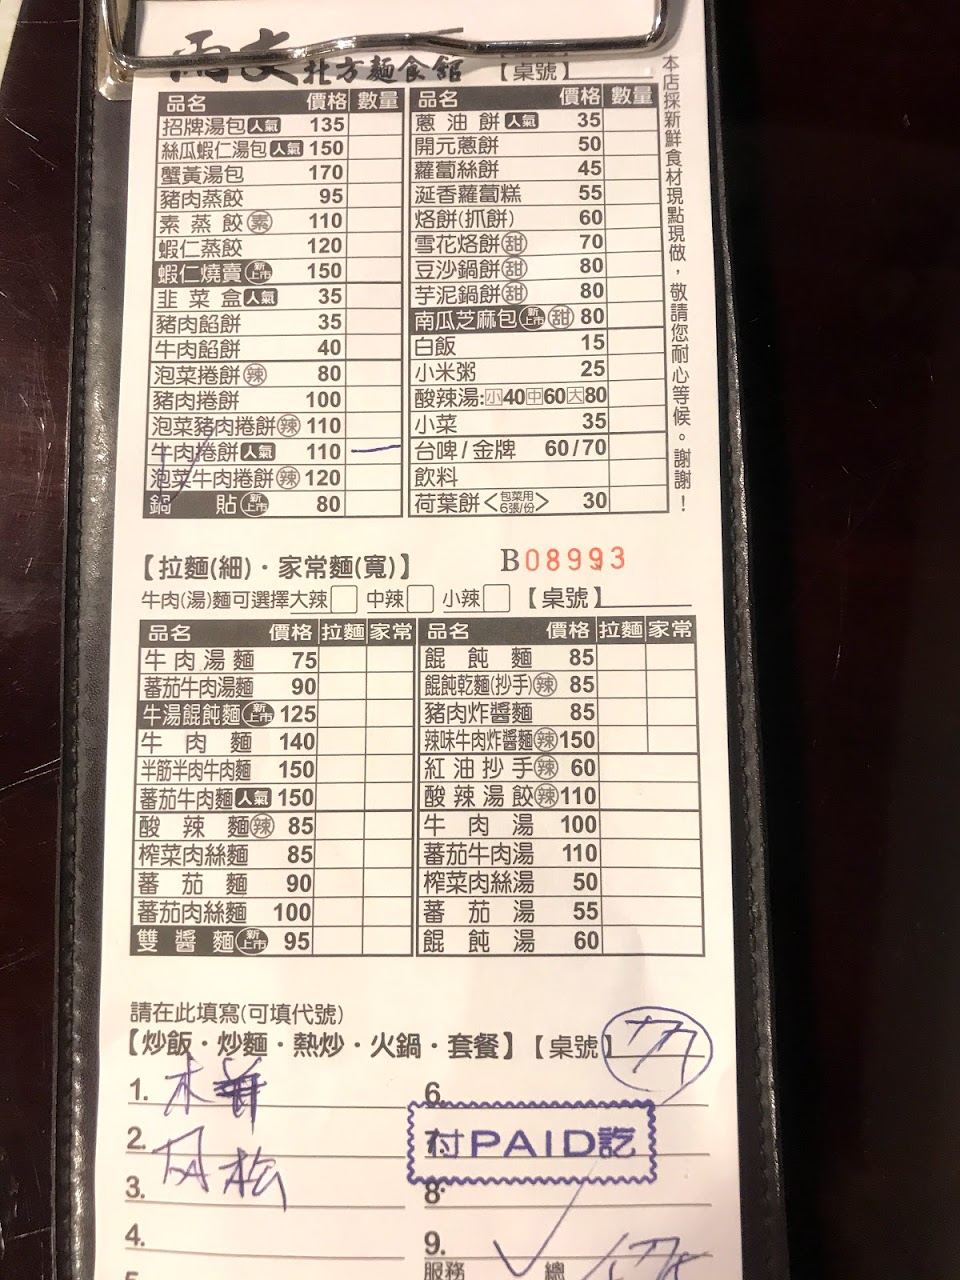 雨文北方麵食館 【桌號】
本店採新鮮食材現點現做，敬請您耐心等候。謝謝！
品名 價格 數量
招牌湯包 人氣 135
絲瓜蝦仁湯包 人氣 150
蟹黃湯包 170
豬肉蒸餃 95
素蒸餃 素 110
蝦仁蒸餃 120
蝦仁燒賣 新上市 150
韭菜盒 人氣 35
豬肉餡餅 35
牛肉餡餅 40
泡菜捲餅 辣 80
豬肉捲餅 100
泡菜豬肉捲餅 辣 110
牛肉捲餅 人氣 110 一
泡菜牛肉捲餅 辣 120
鍋貼 新上市 80
品名 價格 數量
蔥油餅 人氣 35
開元蔥餅 50
蘿蔔絲餅 45
涎香蘿蔔糕 55
烙餅(抓餅) 60
雪花烙餅 甜 70
豆沙鍋餅 甜 80
芋泥鍋餅 甜 80
南瓜芝麻包 新上市 甜 80
白飯 15
小米粥 25
酸辣湯:小40中60大80
小菜 35
台啤/金牌 60/70
飲料
荷葉餅<包菜用6張/份> 30
B08993
【拉麵(細)・家常麵(寬)】
牛肉(湯)麵可選擇大辣 中辣 小辣 【桌號】
品名 價格 拉麵 家常
牛肉湯麵 75
蕃茄牛肉湯麵 90
牛湯餛飩麵 新上市 125
牛肉麵 140
半筋半肉牛肉麵 150
蕃茄牛肉麵 人氣 150
酸辣麵 辣 85
榨菜肉絲麵 85
蕃茄麵 90
蕃茄肉絲麵 100
雙醬麵 新上市 95
品名 價格 拉麵 家常
餛飩麵 85
餛飩乾麵(抄手) 辣 85
豬肉炸醬麵 85
辣味牛肉炸醬麵 辣 150
紅油抄手 辣 60
酸辣湯餃 辣 110
牛肉湯 100
蕃茄牛肉湯 110
榨菜肉絲湯 50
蕃茄湯 55
餛飩湯 60
請在此填寫(可填代號)
【炒飯・炒麵・熱炒・火鍋・套餐】【桌號】
1. 木
2.
3.
4.
6.
7.
付PAID訖
8.
9.
服務 總